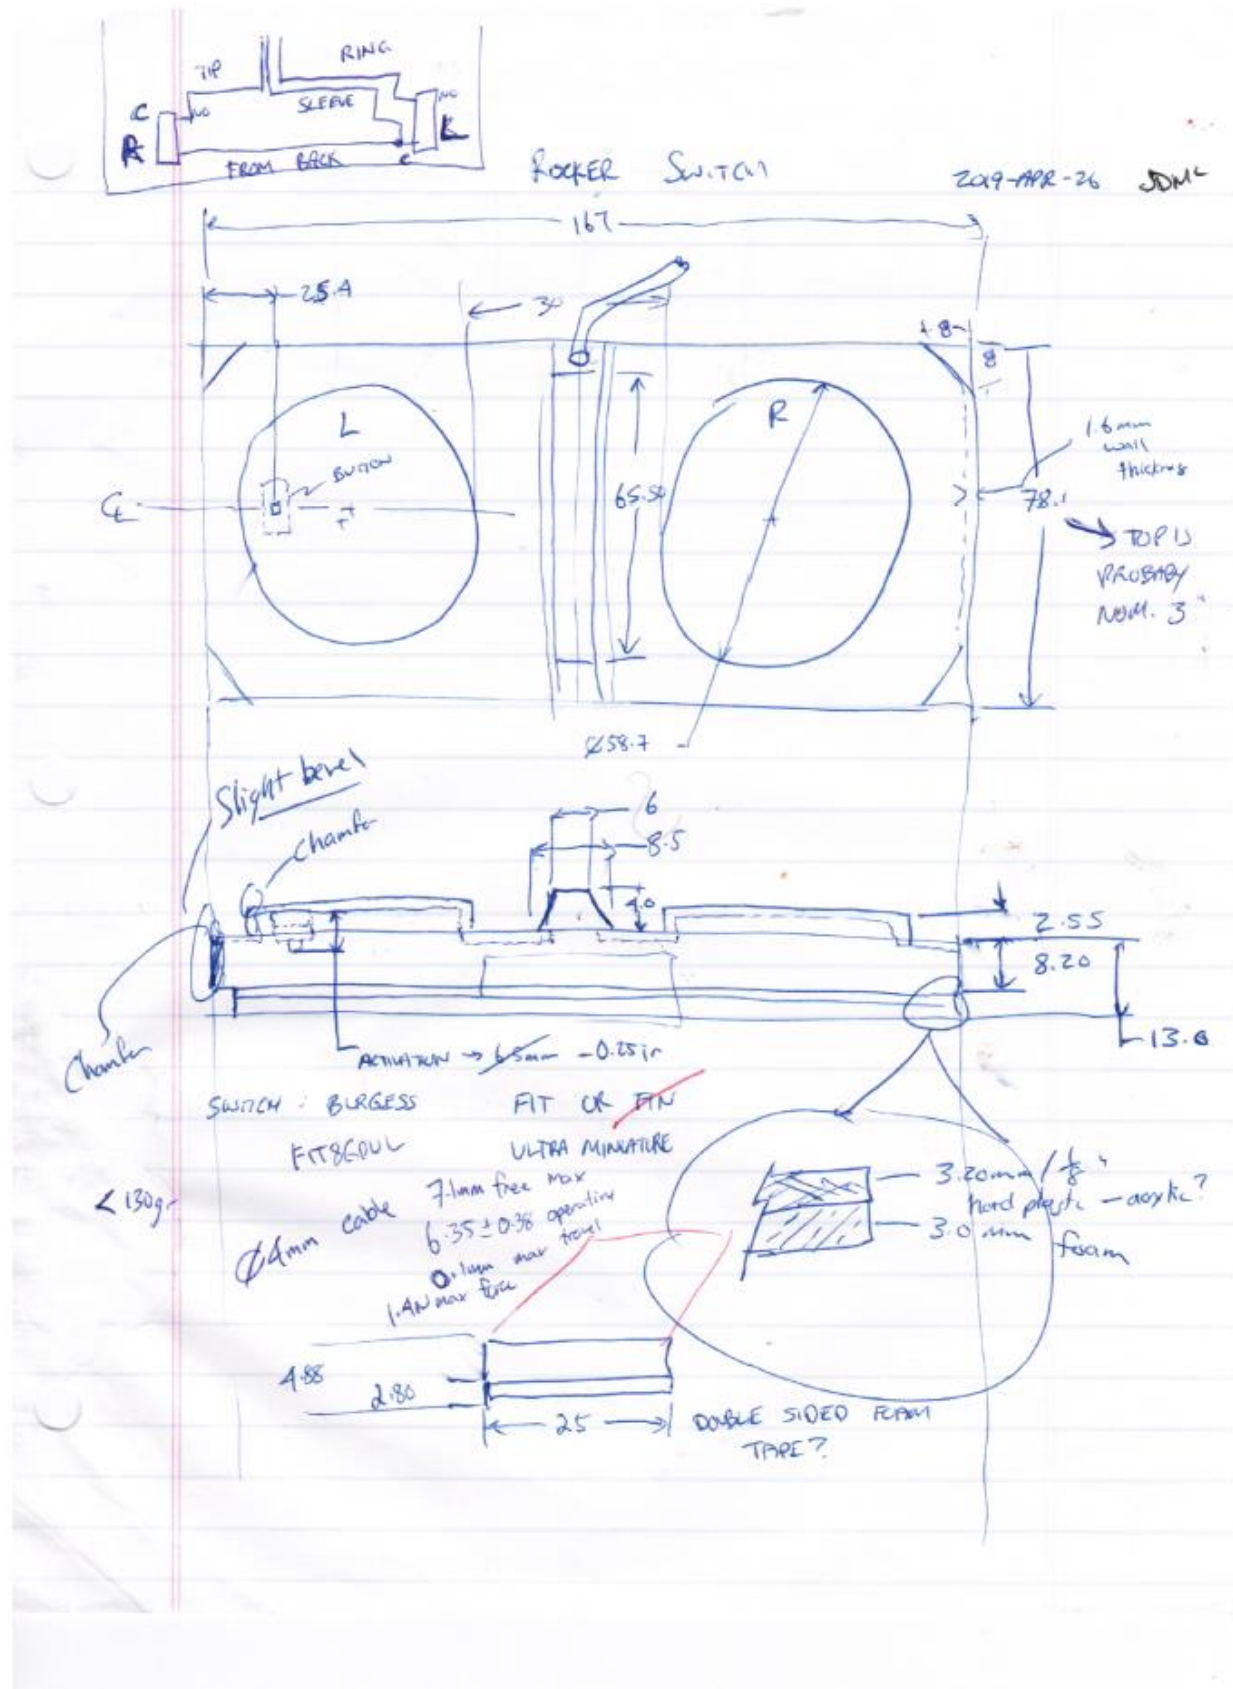 RING
TIP
NO
NO
C
SLEEVE
R
L
FROM BACK
C
ROCKER SWITCH
2019-APR-26 JDM
167
25.4
30
8
8
L
R
BUTTON
1.6mm
wall
65.50
78.1
TOP IS
PROBABY
NOM. 3"
Ø58.7
Slight bevel
6
Chamfer
8.5
4.0
2.55
8.20
Chamfer
13.0
ACTIVATION → 6.5mm - 0.25 in
SWITCH : BURGESS FIT OR FIN
ULTRA MINIATURE
<130gr
Ø4mm cable
7.1mm free max
6.35 ± 0.38 operating
0.1mm max travel
1.4N max force
3.20mm / 1/8"
hard plastic - acrylic?
3.0 mm
foam
4.88
2.80
25
DOUBLE SIDED FOAM
TAPE?